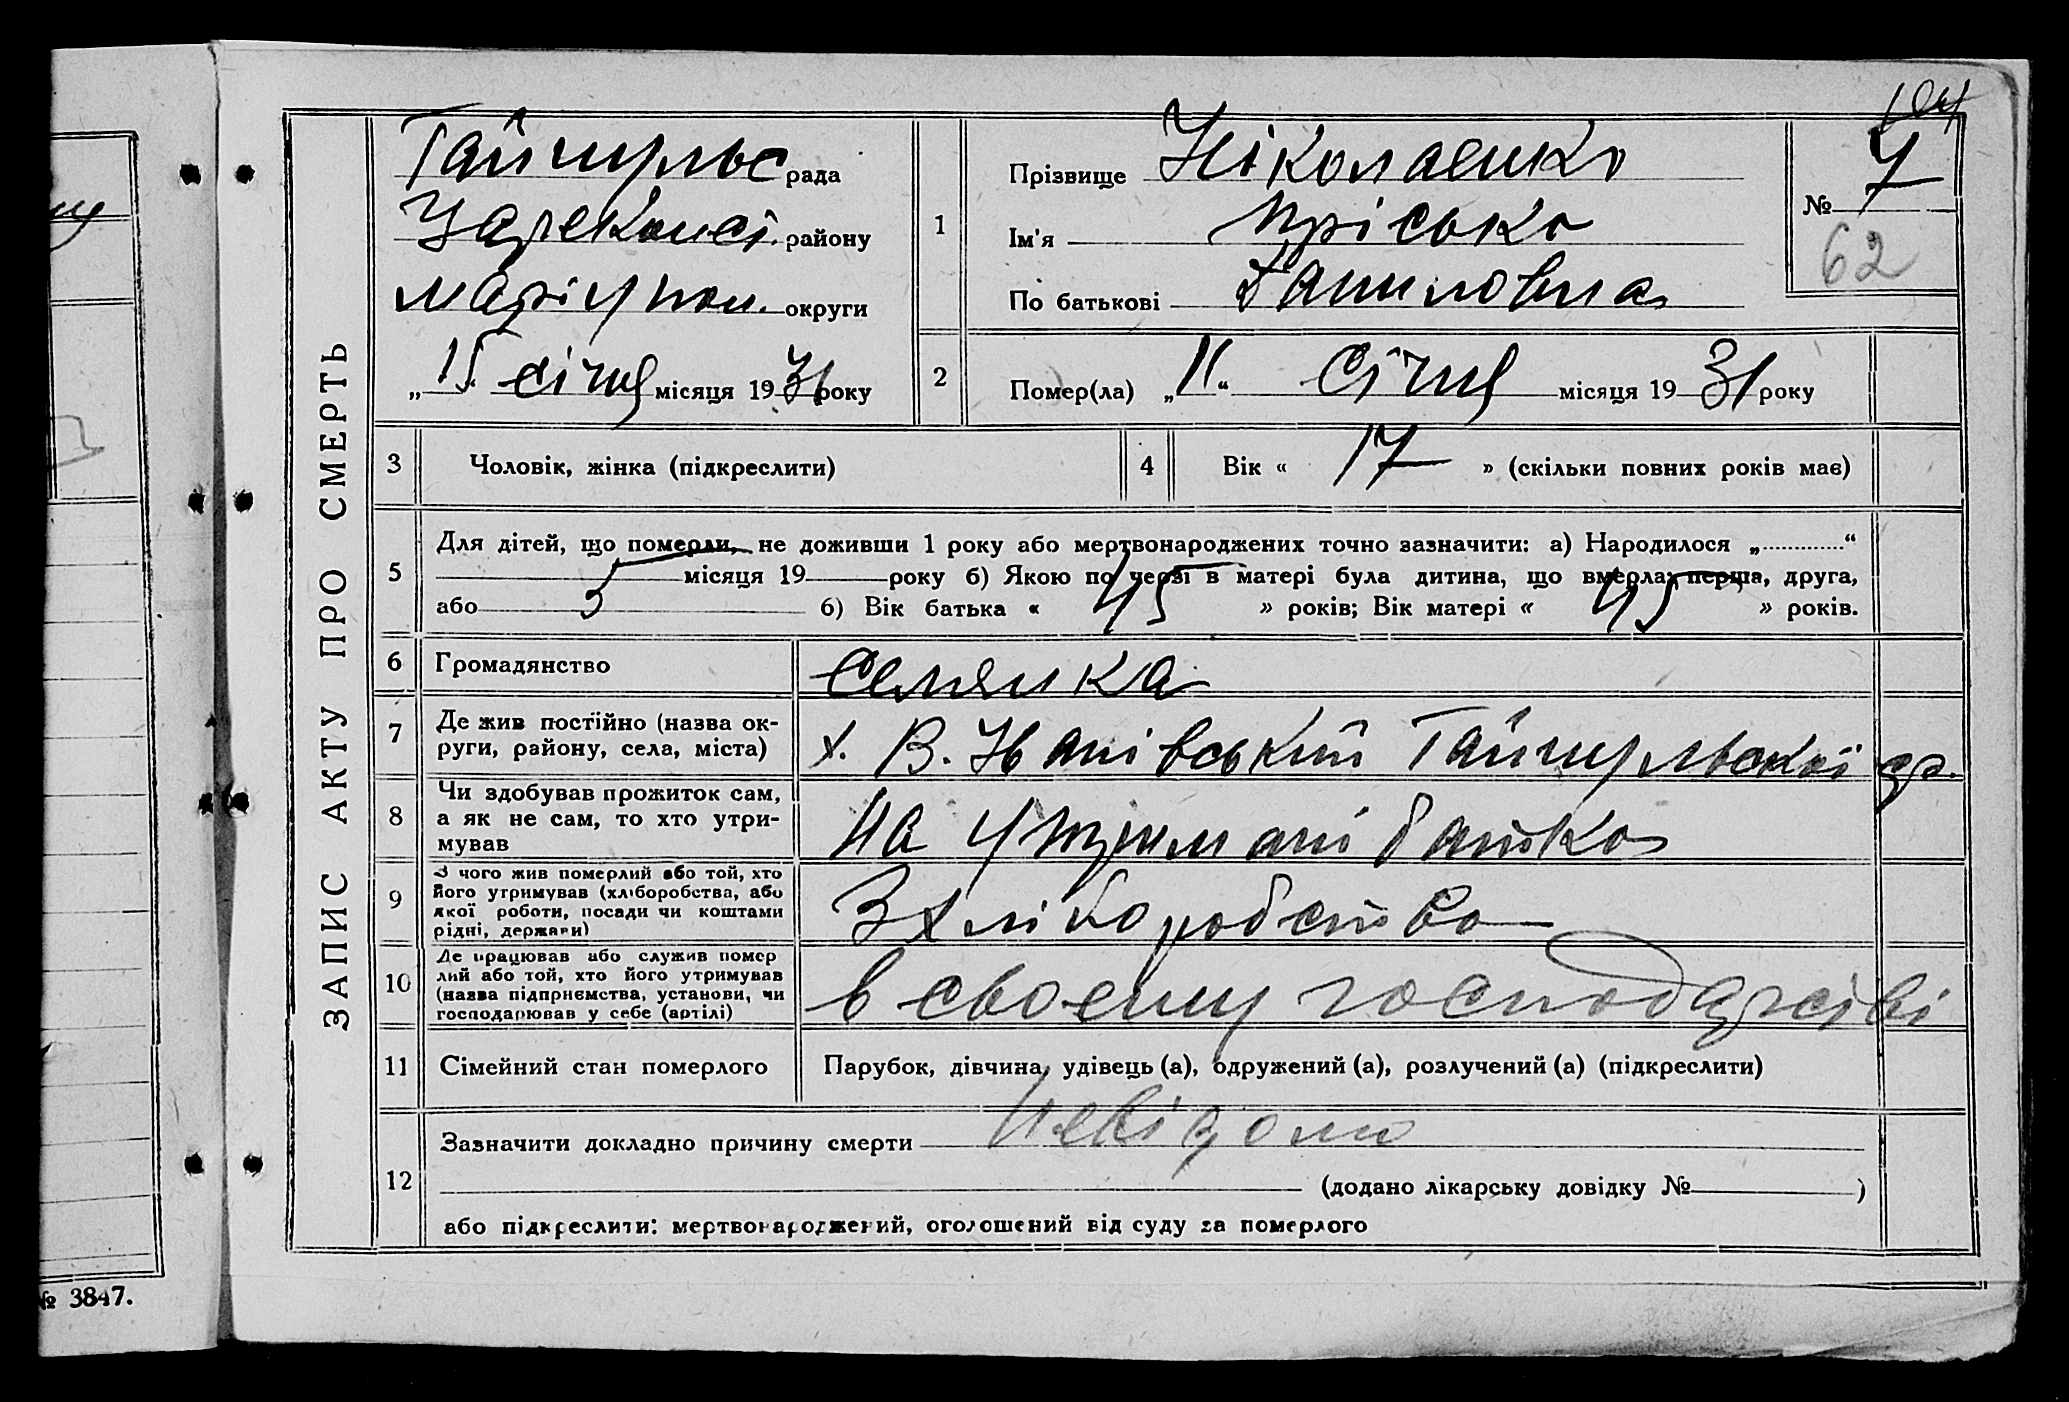 ЗАПИС АКТУ ПРО СМЕРТЬ
104
Гайчульс рада
району
Маріупол. округи
„15" січня місяця 1931 року
1
Прізвище Ніколаенко
Ім'я Прісько
По батькові Даниловна
№ 7
62
2
Помер(ла) „11" Січня місяця 1931 року
3
Чоловік, жінка (підкреслити)
4
Вік « 17 » (скільки повних років має)
5
Для дітей, що померли, не доживши 1 року або мертвонароджених точно зазначити: а) Народилося „ "
місяця 19 року б) Якою по черзі в матері була дитина, що вмерла: перша, друга,
або 5 б) Вік батька « 45 » років; Вік матері « 45 » років.
6
Громадянство
Селянка
7
Де жив постійно (назва ок-
руги, району, села, міста)
х. В. Іванівський Гайчульської ср.
8
Чи здобував прожиток сам,
а як не сам, то хто утри-
мував
На утримані батька
9
З чого жив померлий або той, хто
його утримував (хліборобства, або
якої роботи, посади чи коштами
рідні, держави)
З хліборобства
10
Де працював або служив помер
лий або той, хто його утримував
(назва підприємства, установи, чи
господарював у себе (артілі)
в своему господарстві
11
Сімейний стан померлого
Парубок, дівчина, удівець (а), одружений (а), розлучений (а) (підкреслити)
12
Зазначити докладно причину смерти Невідомо
(додано лікарську довідку № )
або підкреслити: мертвонароджений, оголошений від суду за померлого
№ 3847.